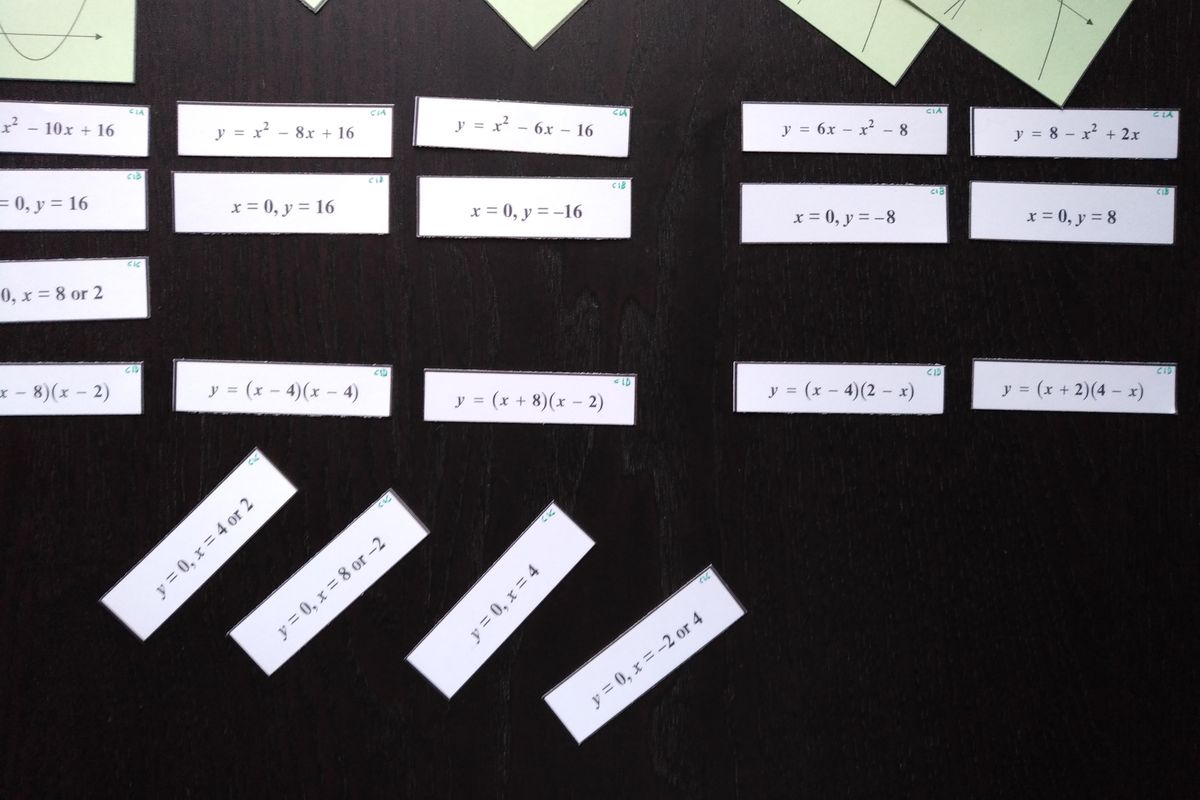 C1A
x² – 10x + 16
C1A
y = x² – 8x + 16
C1A
y = x² – 6x – 16
C1A
y = 6x – x² – 8
C1A
y = 8 – x² + 2x
C1B
= 0, y = 16
C1B
x = 0, y = 16
C1B
x = 0, y = –16
C1B
x = 0, y = –8
C1B
x = 0, y = 8
C1C
0, x = 8 or 2
C1D
x – 8)(x – 2)
C1D
y = (x – 4)(x – 4)
C1D
y = (x + 8)(x – 2)
C1D
y = (x – 4)(2 – x)
C1D
y = (x + 2)(4 – x)
C1C
y = 0, x = 4 or 2
C1C
y = 0, x = 8 or –2
C1C
y = 0, x = 4
C1C
y = 0, x = –2 or 4